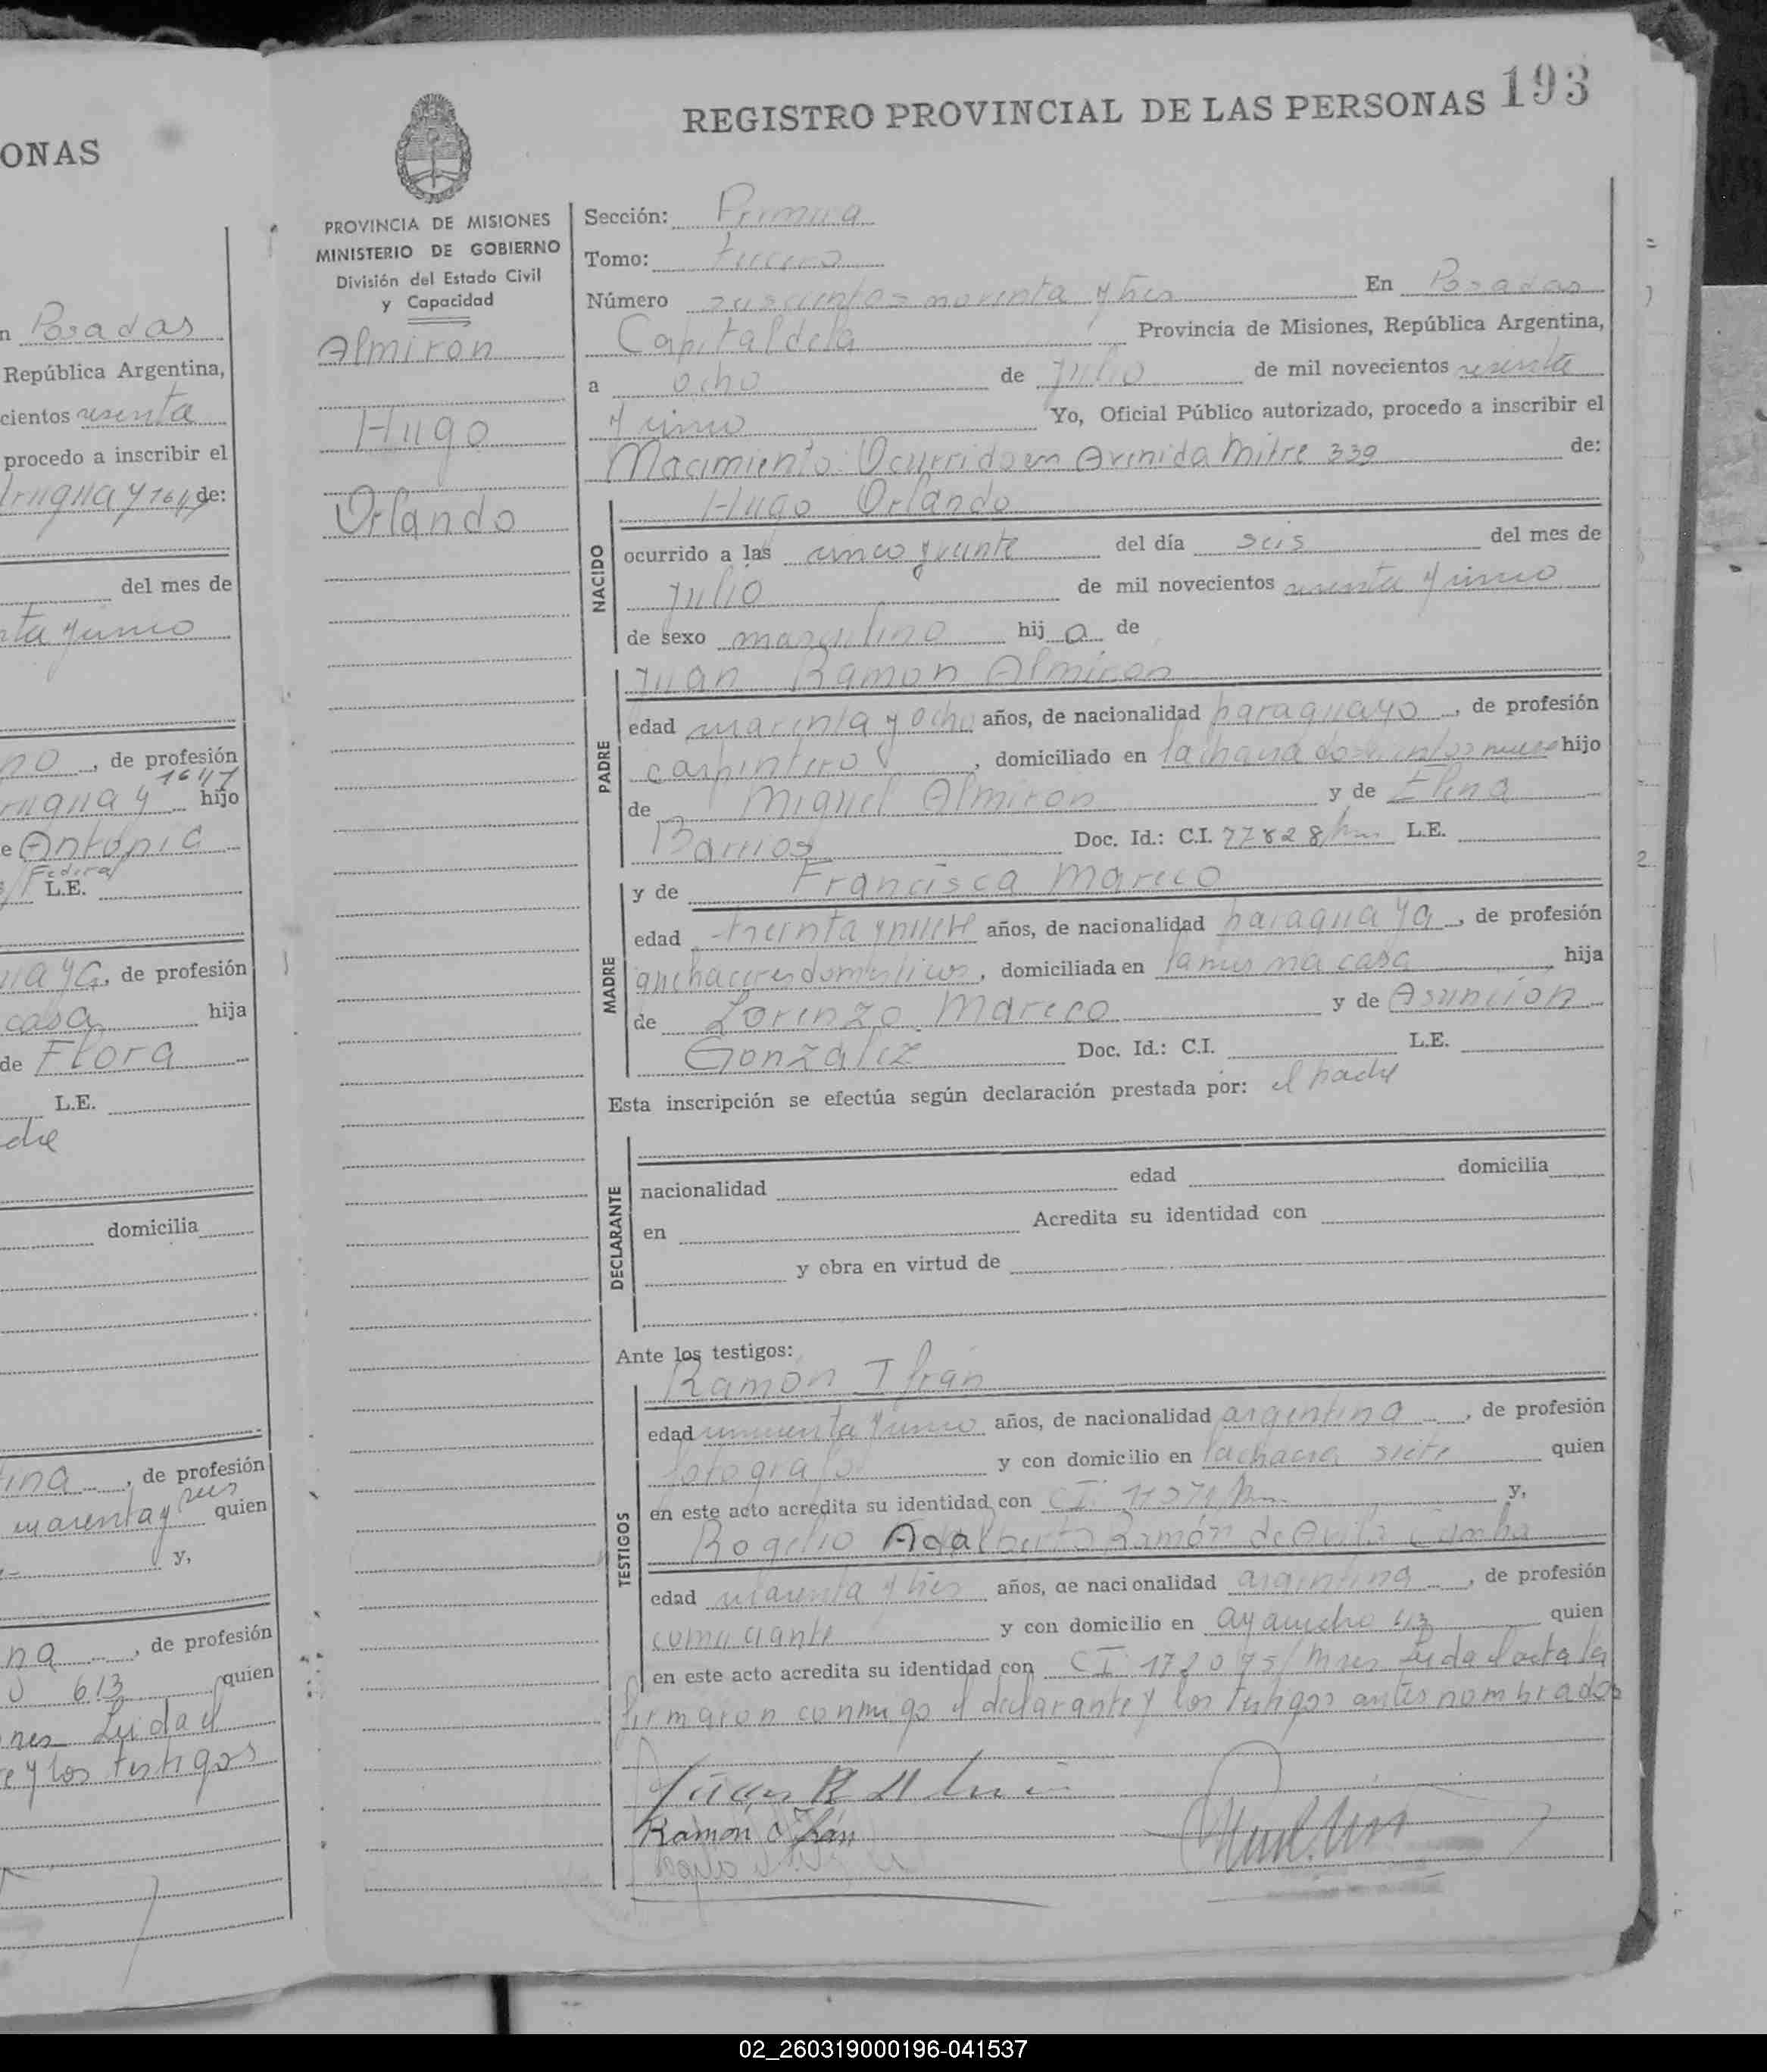 ONAS
n Posadas
República Argentina,
cientos sesenta
procedo a inscribir el
de:
del mes de
no, de profesión
1647
hijo
e Antonia
Federal
L.E.
, de profesión
casa hija
de Flora
L.E.
domicilia
, de profesión
seis
quien
y,
na, de profesión
613 quien
Leida el
e y los testigos
193
REGISTRO PROVINCIAL DE LAS PERSONAS
PROVINCIA DE MISIONES
MINISTERIO DE GOBIERNO
División del Estado Civil
y Capacidad
Almiron
Hugo
Orlando
Sección: Primera
Tomo: tercero
Número seiscientos noventa y tres En Posadas
Capital de la Provincia de Misiones, República Argentina,
a ocho de Julio de mil novecientos sesenta
y cinco Yo, Oficial Público autorizado, procedo a inscribir el
Nacimiento Ocurrido en Avenida Mitre 339 de:
NACIDO
Hugo Orlando
ocurrido a las cinco y veinte del día seis del mes de
Julio de mil novecientos sesenta y cinco
de sexo masculino hijo de
PADRE
Juan Ramon Almiron
edad cuarenta y ocho años, de nacionalidad paraguayo, de profesión
carpintero, domiciliado en la chacra doscientos nueve hijo
de Miguel Almiron y de Elena
Barrios Doc. Id.: C.I. 77828 L.E.
MADRE
y de Francisca Mareco
edad treinta y nueve años, de nacionalidad paraguaya, de profesión
quehaceres domesticos, domiciliada en la misma casa hija
de Lorenzo Mareco y de Asuncion
Gonzalez Doc. Id.: C.I. L.E.
Esta inscripción se efectúa según declaración prestada por: el padre
DECLARANTE
nacionalidad edad domicilia
en Acredita su identidad con
y obra en virtud de
Ante los testigos:
TESTIGOS
Ramón Ifrán
edad cincuenta y cinco años, de nacionalidad argentina, de profesión
fotografo y con domicilio en la chacra siete quien
en este acto acredita su identidad con CI y,
Rogelio Adalberto Ramón de Avila Cunha
edad cuarenta y tres años, de nacionalidad argentina, de profesión
comerciante y con domicilio en Ayacucho 613 quien
en este acto acredita su identidad con CI 172075/Mnes Leida el acta la
firmaron conmigo el declarante y los testigos antes nombrados
Ramón Ifrán
02_260319000196-041537